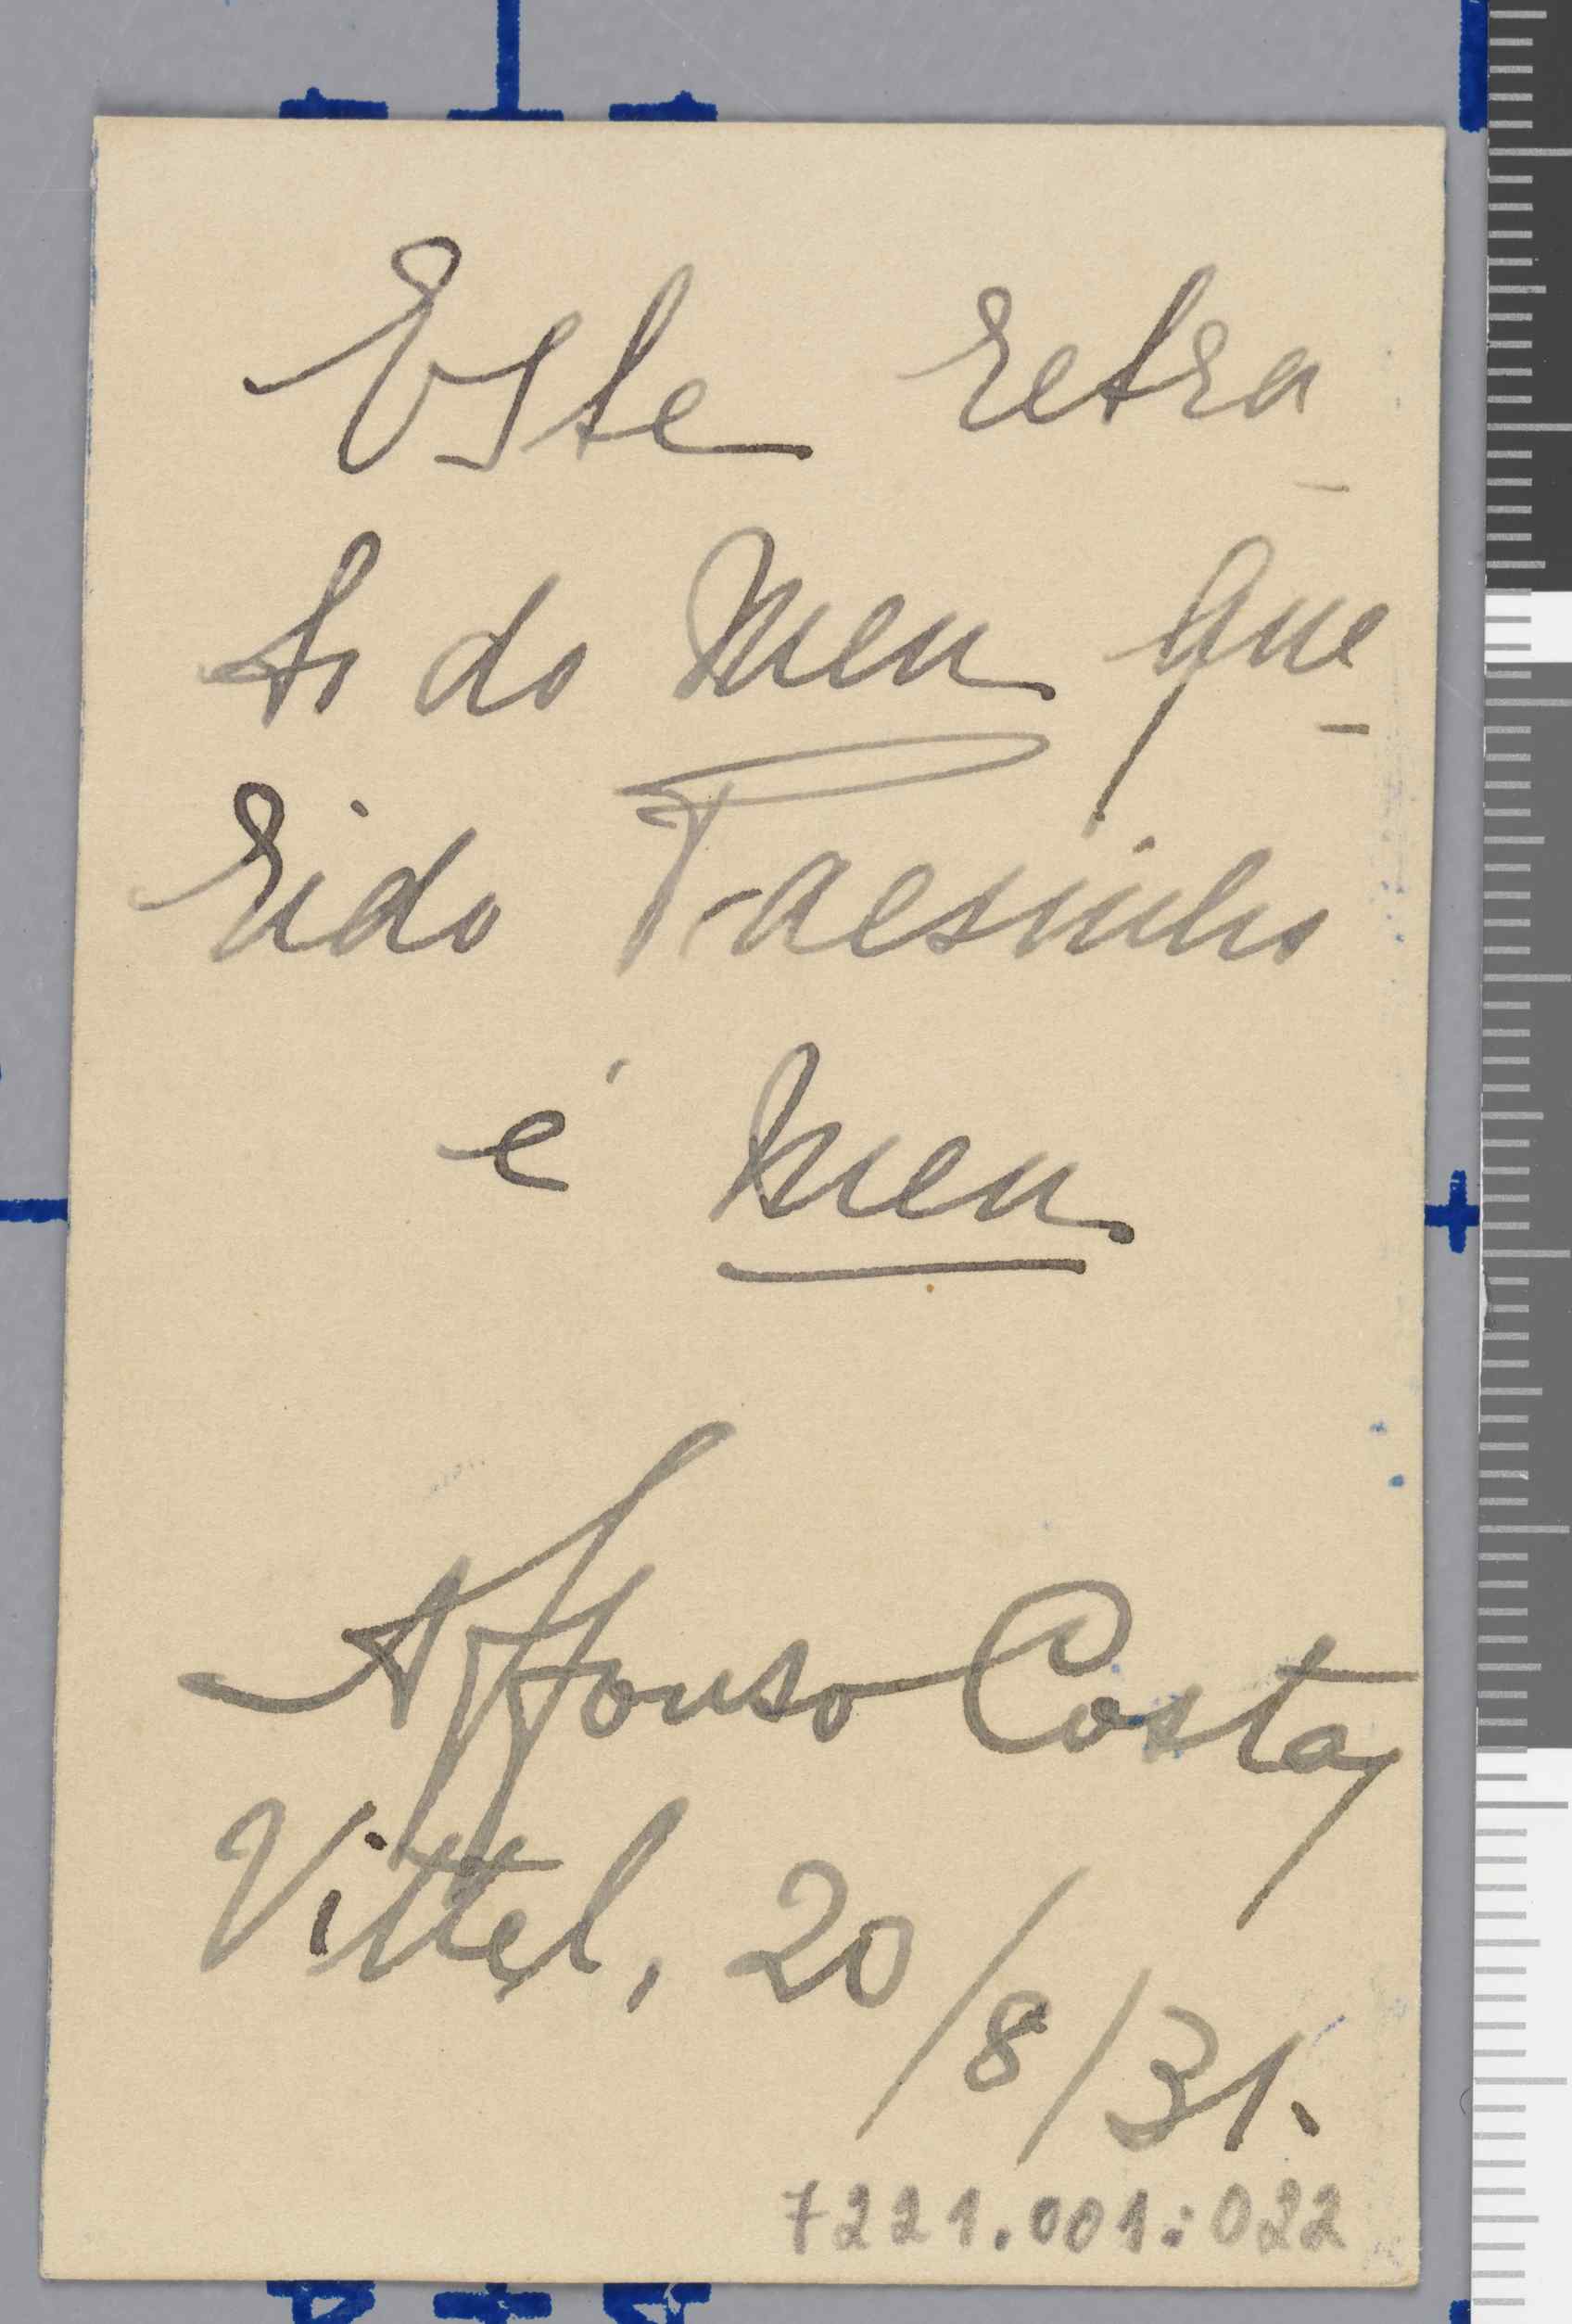 Este retra-
to do meu que-
rido Faesinho
é meu
Affonso Costa
Vittel, 20/8/31.
7221.001:022